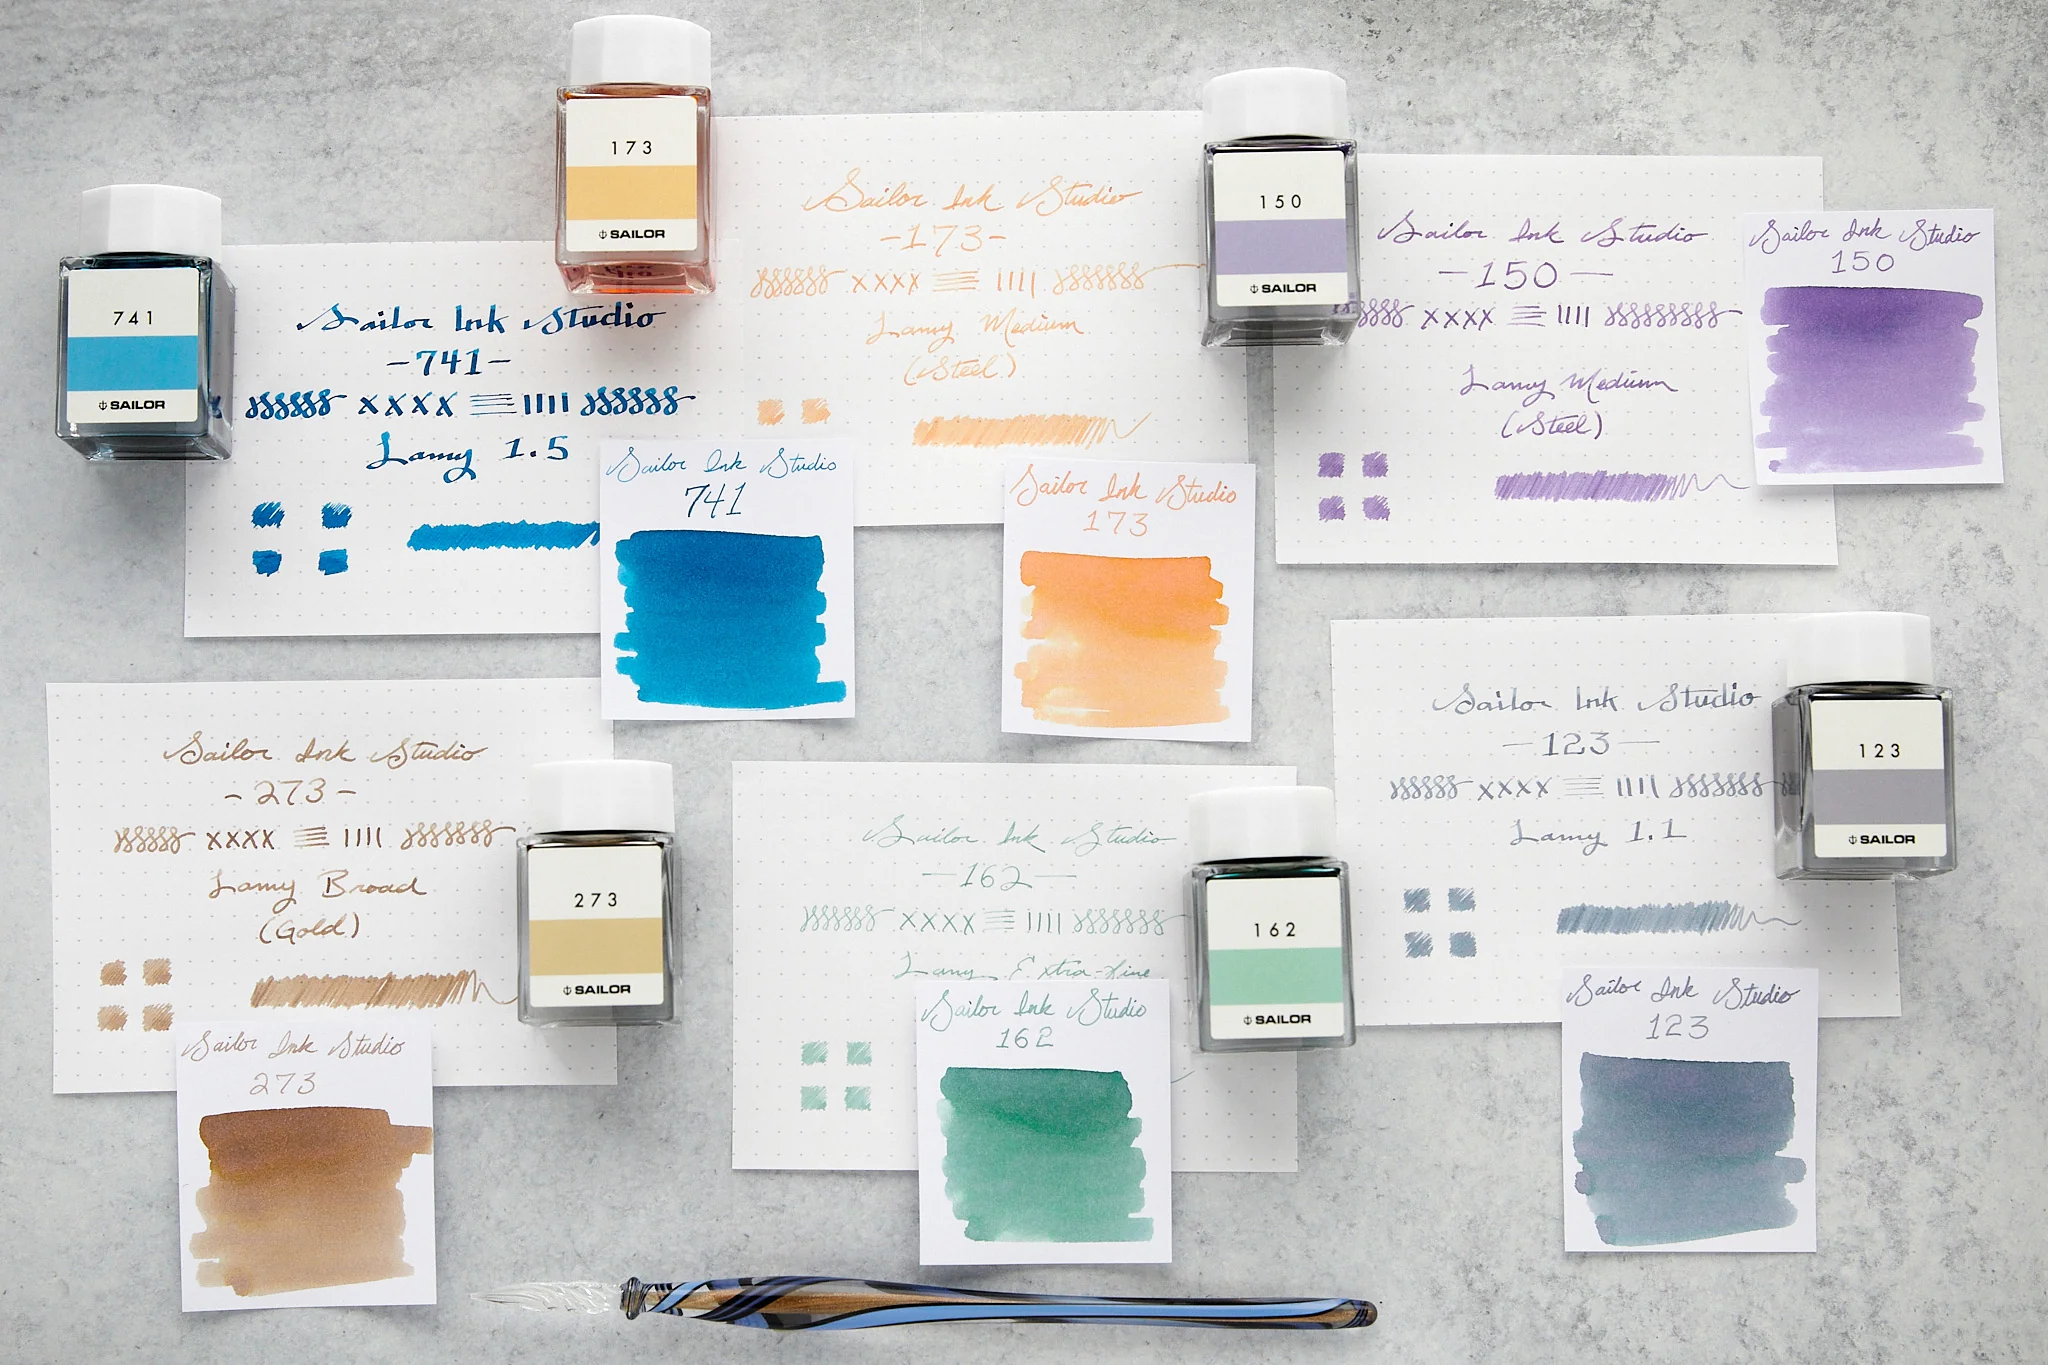 741
SAILOR
Sailor Ink Studio
-741-
xxxx
Lamy 1.5
Sailor Ink Studio
741
173
SAILOR
Sailor Ink Studio
-173-
xxxx
Lamy Medium
(Steel)
Sailor Ink Studio
173
150
SAILOR
Sailor Ink Studio
-150-
xxxx
Lamy Medium
(Steel)
Sailor Ink Studio
150
Sailor Ink Studio
-273-
xxxx
Lamy Broad
(Gold)
273
SAILOR
Sailor Ink Studio
273
Sailor Ink Studio
-162-
xxxx
Lamy Extra-fine
162
SAILOR
Sailor Ink Studio
162
Sailor Ink Studio
-123-
xxxx
Lamy 1.1
123
SAILOR
Sailor Ink Studio
123